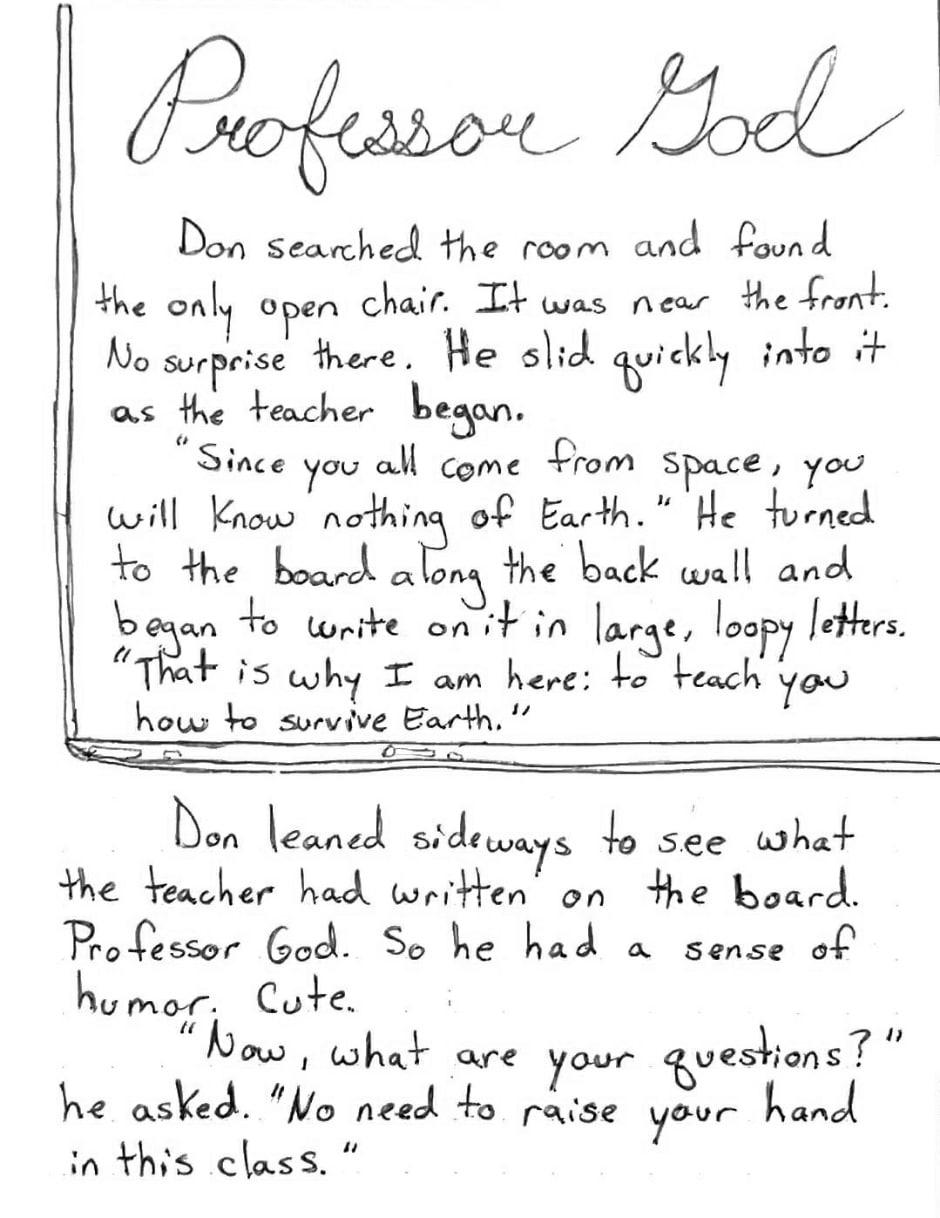 Professor God
Don searched the room and found
the only open chair. It was near the front.
No surprise there. He slid quickly into it
as the teacher began.
"Since you all come from space, you
will know nothing of Earth." He turned
to the board along the back wall and
began to write on it in large, loopy letters.
"That is why I am here: to teach you
how to survive Earth."
Don leaned sideways to see what
the teacher had written on the board.
Professor God. So he had a sense of
humor. Cute.
"Now, what are your questions?"
he asked. "No need to raise your hand
in this class."